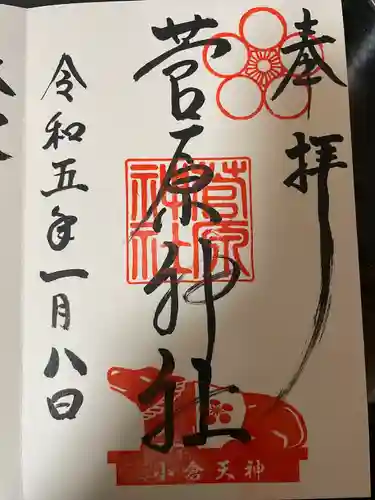 奉拝
菅原神社
菅原
神社
小倉天神
令和五年一月八日